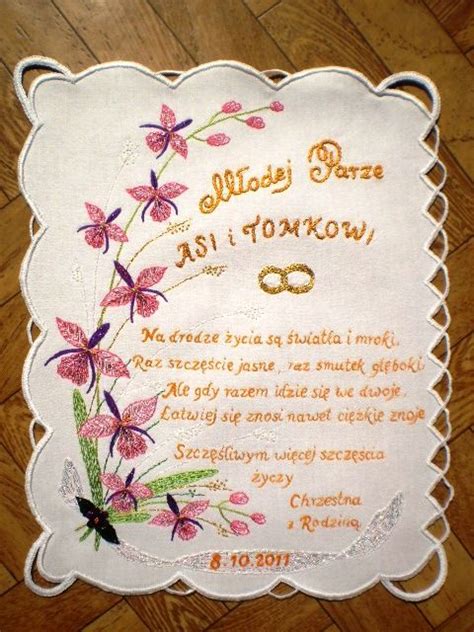 Młodej Parze
ASI i TOMKOWI
Na drodze życia są światła i mroki,
Raz szczęście jasne, raz smutek głęboki,
Ale gdy razem idzie się we dwoje,
Łatwiej się znosi nawet ciężkie znoje
Szczęśliwym więcej szczęścia
życzy
Chrzestna
z Rodziną
8.10.2011